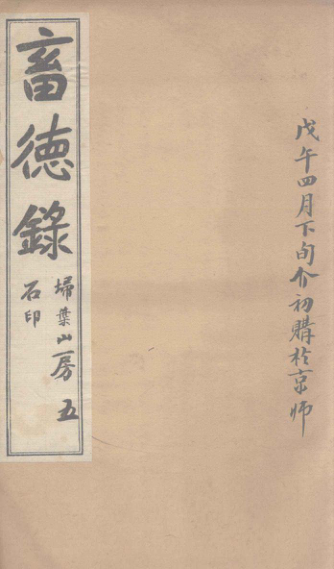 戊午四月下旬介初購於京师
畜德錄
掃葉山房
石印
五